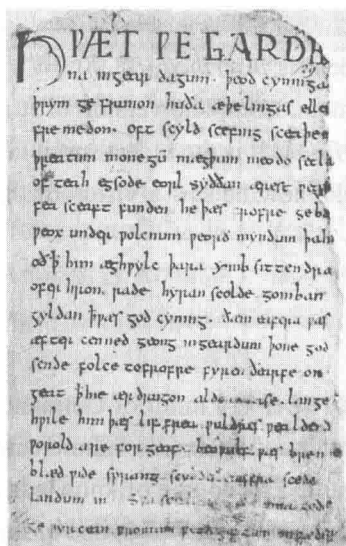 HǷÆT ǷE GARDE
na ingear dagum. þeod cyninga
þrym ge frunon huða æþelingas elle
fremedon. oft scyld scefing sceaþe
þreatum monegū mægþum meodo setla
of teah egsode eorl syððan ærest ƿear
fea sceaft funden he þæs frofre geba
ƿeox under ƿolcnum ƿeorð myndum þah
oð ꝥ him æghƿylc þara ymb sittendra
ofer hron rade hyran scolde gomban
gyldan ꝥ ƿæs god cyning. ðæm eafera ƿæs
æfter cenned geong ingeardum þone god
sende folce tofrofre fyren ðearfe on
geat ꝥ hie ær drugon aldor ase. lange
hƿile him þæs lif frea ƿuldres ƿealdend
ƿorold are for geaf. beoƿulf ƿæs breme
blæd ƿide sprang scyldes eafera scede
landum in Sƿa sceal uma gode
ge ƿyrcean fromum feoh giftum on fæder